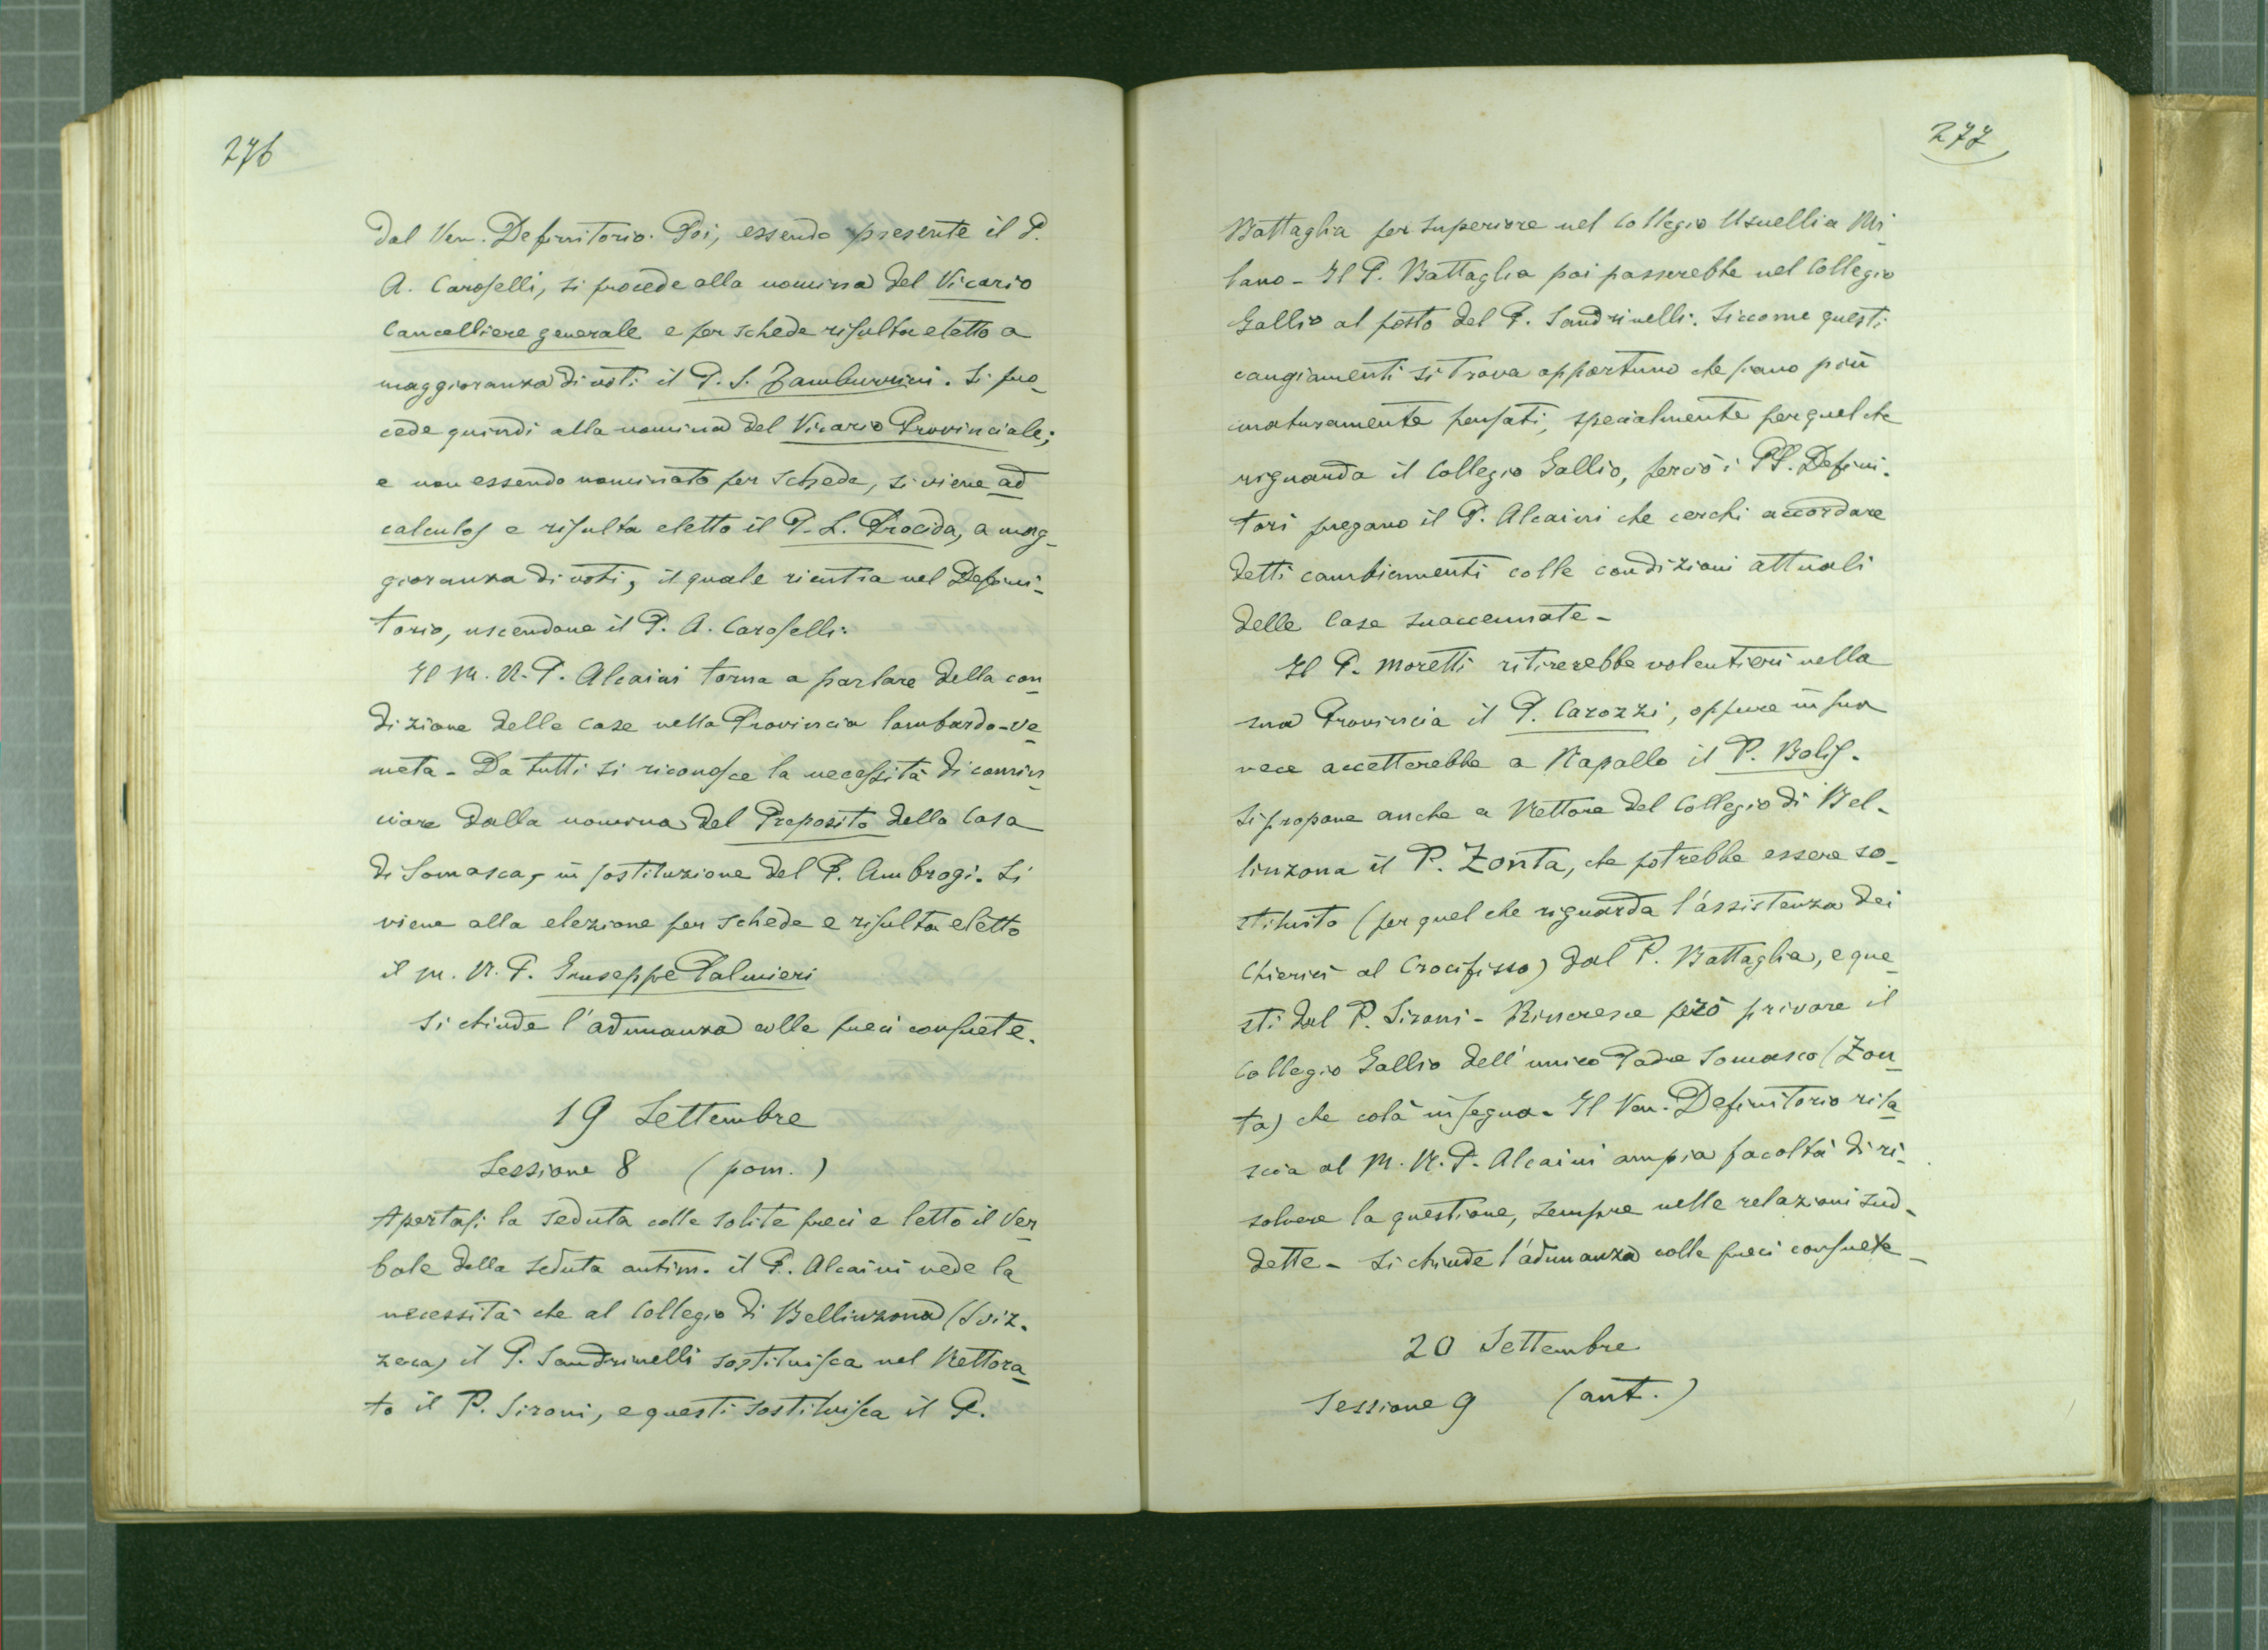 276
dal Ven. Definitorio. Poi, essendo presente il P.
A. Caroselli, si procede alla nomina del Vicario
Cancelliere generale e per schede risulta eletto a
maggioranza di voti il P. S. Zambarini. Si pro-
cede quindi alla nomina del Vicario Provinciale;
e non essendo nominato per schede, si viene ad
calculos e risulta eletto il P. L. Procida, a mag-
gioranza di voti, il quale rientra nel Defini-
torio, uscendone il P. A. Caroselli.
Il M. R. P. Alcaini torna a parlare della con-
dizione delle case nella Provincia lombardo-ve-
neta - Da tutti si riconosce la necessità di comin-
ciare dalla nomina del Preposito della Casa
di Somasca, in sostituzione del P. Ambrogi. Si
viene alla elezione per schede e risulta eletto
il M. R. P. Giuseppe Palmieri
Si chiude l'adunanza colle preci consuete.
19 Settembre
Sessione 8 (pom.)
Apertasi la seduta colle solite preci e letto il Ver-
bale della seduta antim. il P. Alcaini vede la
necessità che al Collegio di Bellinzona (Sviz-
zera) il P. Sandrinelli sostituisca nel Rettora-
to il P. Sironi, e questi sostituisca il P.
277
Battaglia per superiore nel Collegio Usuelli a Mi-
lano - Il P. Battaglia poi passerebbe nel Collegio
Gallio al posto del P. Sandrinelli. Siccome questi
cangiamenti si trova opportuno che siano più
maturamente pensati, specialmente per quel che
riguarda il Collegio Gallio, perciò i PP. Defini-
tori pregano il P. Alcaini che cerchi accordare
detti cambiamenti colle condizioni attuali
delle Case suaccennate -
Il P. Moretti ritirerebbe volentieri nella
sua Provincia il P. Carozzi, oppure in sua
vece accetterebbe a Rapallo il P. Bolis.
Si propone anche a Rettore del Collegio di Bel-
linzona il P. Zonta, che potrebbe essere so-
stituito (per quel che riguarda l'assistenza dei
Chierici al Crocifisso) dal P. Battaglia, e que-
sti dal P. Sironi - Rincresce però privare il
Collegio Gallio dell'unico Padre Somasco (Zon-
ta) che colà insegna. Il Ven. Definitorio rila-
scia al M. R. P. Alcaini ampia facoltà di ri-
solvere la questione, sempre nelle relazioni sud-
dette - Si chiude l'adunanza colle preci consuete -
20 Settembre
Sessione 9 (ant.)